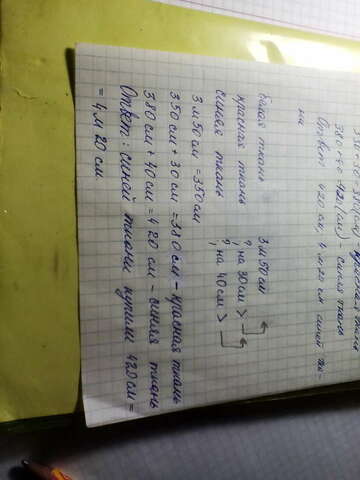 380+40=420(см) - синяя ткань
Ответ: 420 см, 4 м 20 см синей тка-
ни
белая ткань 3 м 50 см
красная ткань ?, на 30 см >
синяя ткань ?, на 40 см >
3 м 50 см = 350 см
350 см + 30 см = 380 см - красная ткань
380 см + 40 см = 420 см - синяя ткань
Ответ: синей ткани купили 420 см =
= 4 м 20 см